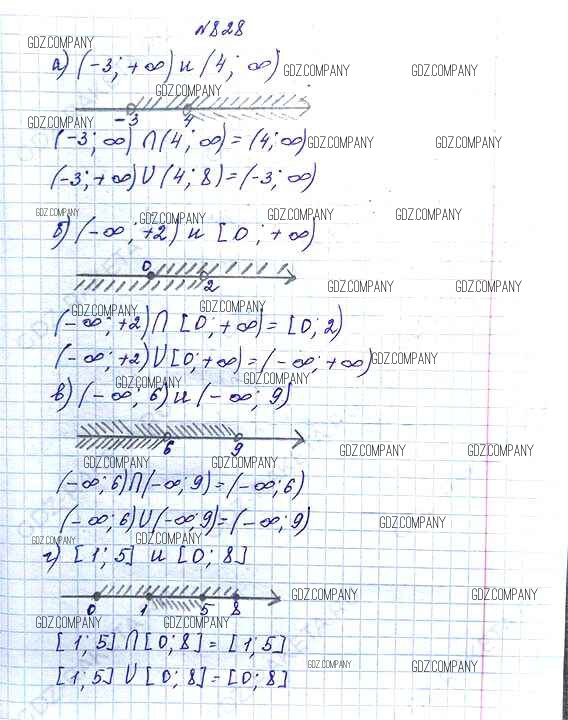 №828
GDZ.COMPANY
а) (-3; +∞) и (4; ∞) GDZ.COMPANY GDZ.COMPANY
GDZ.COMPANY
-3 4
GDZ.COMPANY
(-3; ∞) ∩ (4; ∞) = (4; ∞) GDZ.COMPANY GDZ.COMPANY
(-3; +∞) U (4; 8) = (-3; ∞)
GDZ.COMPANY GDZ.COMPANY GDZ.COMPANY GDZ.COMPANY
б) (-∞; +2) и [0; +∞)
0 2
GDZ.COMPANY GDZ.COMPANY
GDZ.COMPANY GDZ.COMPANY
(-∞; +2) ∩ [0; +∞) = [0; 2)
(-∞; +2) U [0; +∞) = (-∞; +∞) GDZ.COMPANY
GDZ.COMPANY GDZ.COMPANY
в) (-∞; 6) и (-∞; 9)
6 9
GDZ.COMPANY GDZ.COMPANY
GDZ.COMPANY GDZ.COMPANY
(-∞; 6) ∩ (-∞; 9) = (-∞; 6)
(-∞; 6) U (-∞; 9) = (-∞; 9) GDZ.COMPANY
GDZ.COMPANY GDZ.COMPANY
г) [1; 5] и [0; 8]
GDZ.COMPANY GDZ.COMPANY
0 1 5 8
GDZ.COMPANY GDZ.COMPANY
[1; 5] ∩ [0; 8] = [1; 5]
GDZ.COMPANY GDZ.COMPANY
[1; 5] U [0; 8] = [0; 8]